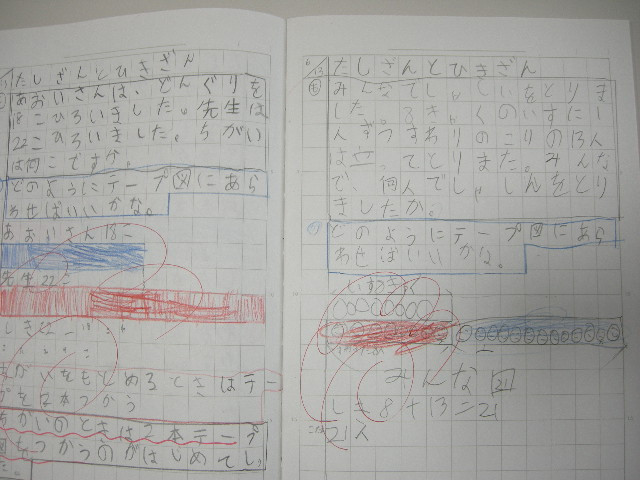 たしざんとひきざん
あおいさんは、どんぐりを
18こひろいました。先生は
22こひろいました。ちがい
は何こですか。
どのようにテープ図にあら
わせばいいかな。
あおいさん18こ
先生22こ
ちがいをもとめるときはテー
ちがいのときは2本テープ
図をつかうのがはじめてし。
6/13
たしざんとひきざん
みんなでしゃしんをとりま
した。8きゃくのいすに1
人ずつすわりのこりの13人
は立ってとりました。みんな
で、何人でしゃしんをとり
ましたか。
どのようにテープ図にあら
わせばいいかな。
みんな 21
しき8+13=21
21人